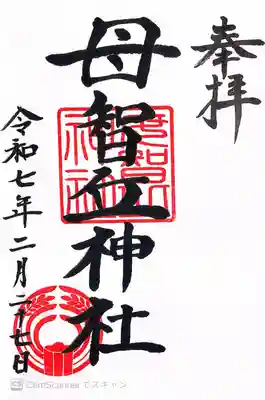 奉拝
母智丘神社
令和七年二月二十七日
CS CamScanner でスキャン